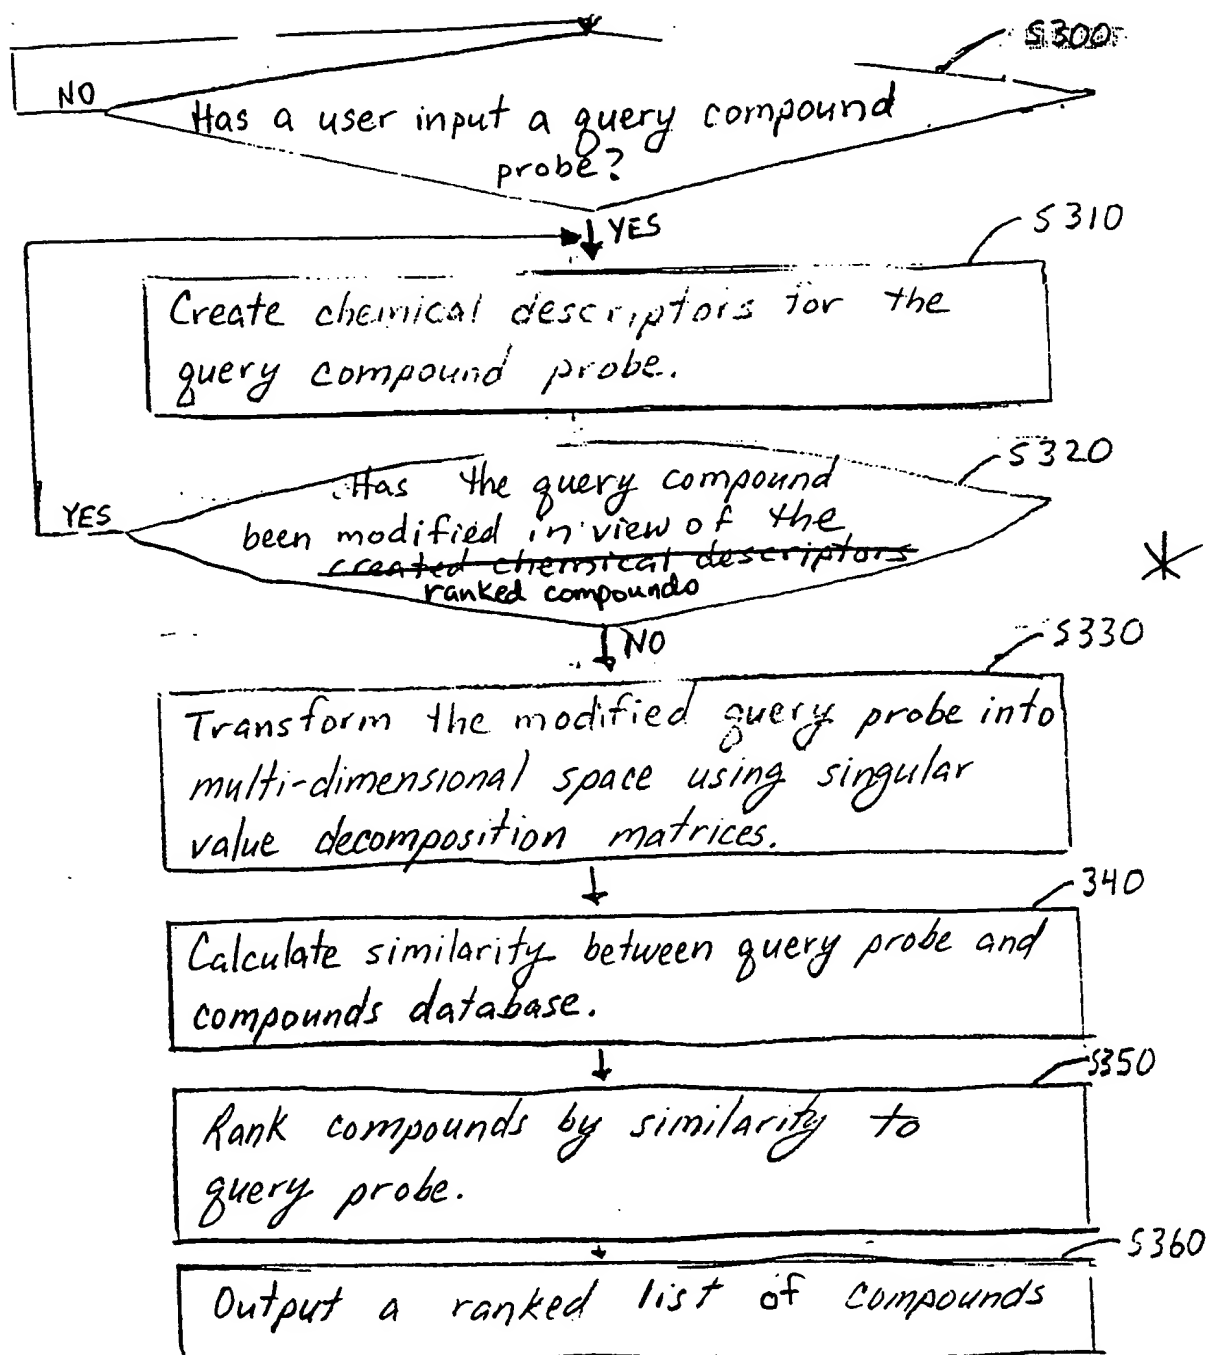 S300
NO
Has a user input a query compound
probe?
YES
S310
Create chemical descriptors for the
query compound probe.
S320
Has the query compound
YES
been modified in view of the
created chemical descriptors
ranked compounds
NO
S330
Transform the modified query probe into
multi-dimensional space using singular
value decomposition matrices.
340
Calculate similarity between query probe and
compounds database.
S350
Rank compounds by similarity to
query probe.
S360
Output a ranked list of compounds